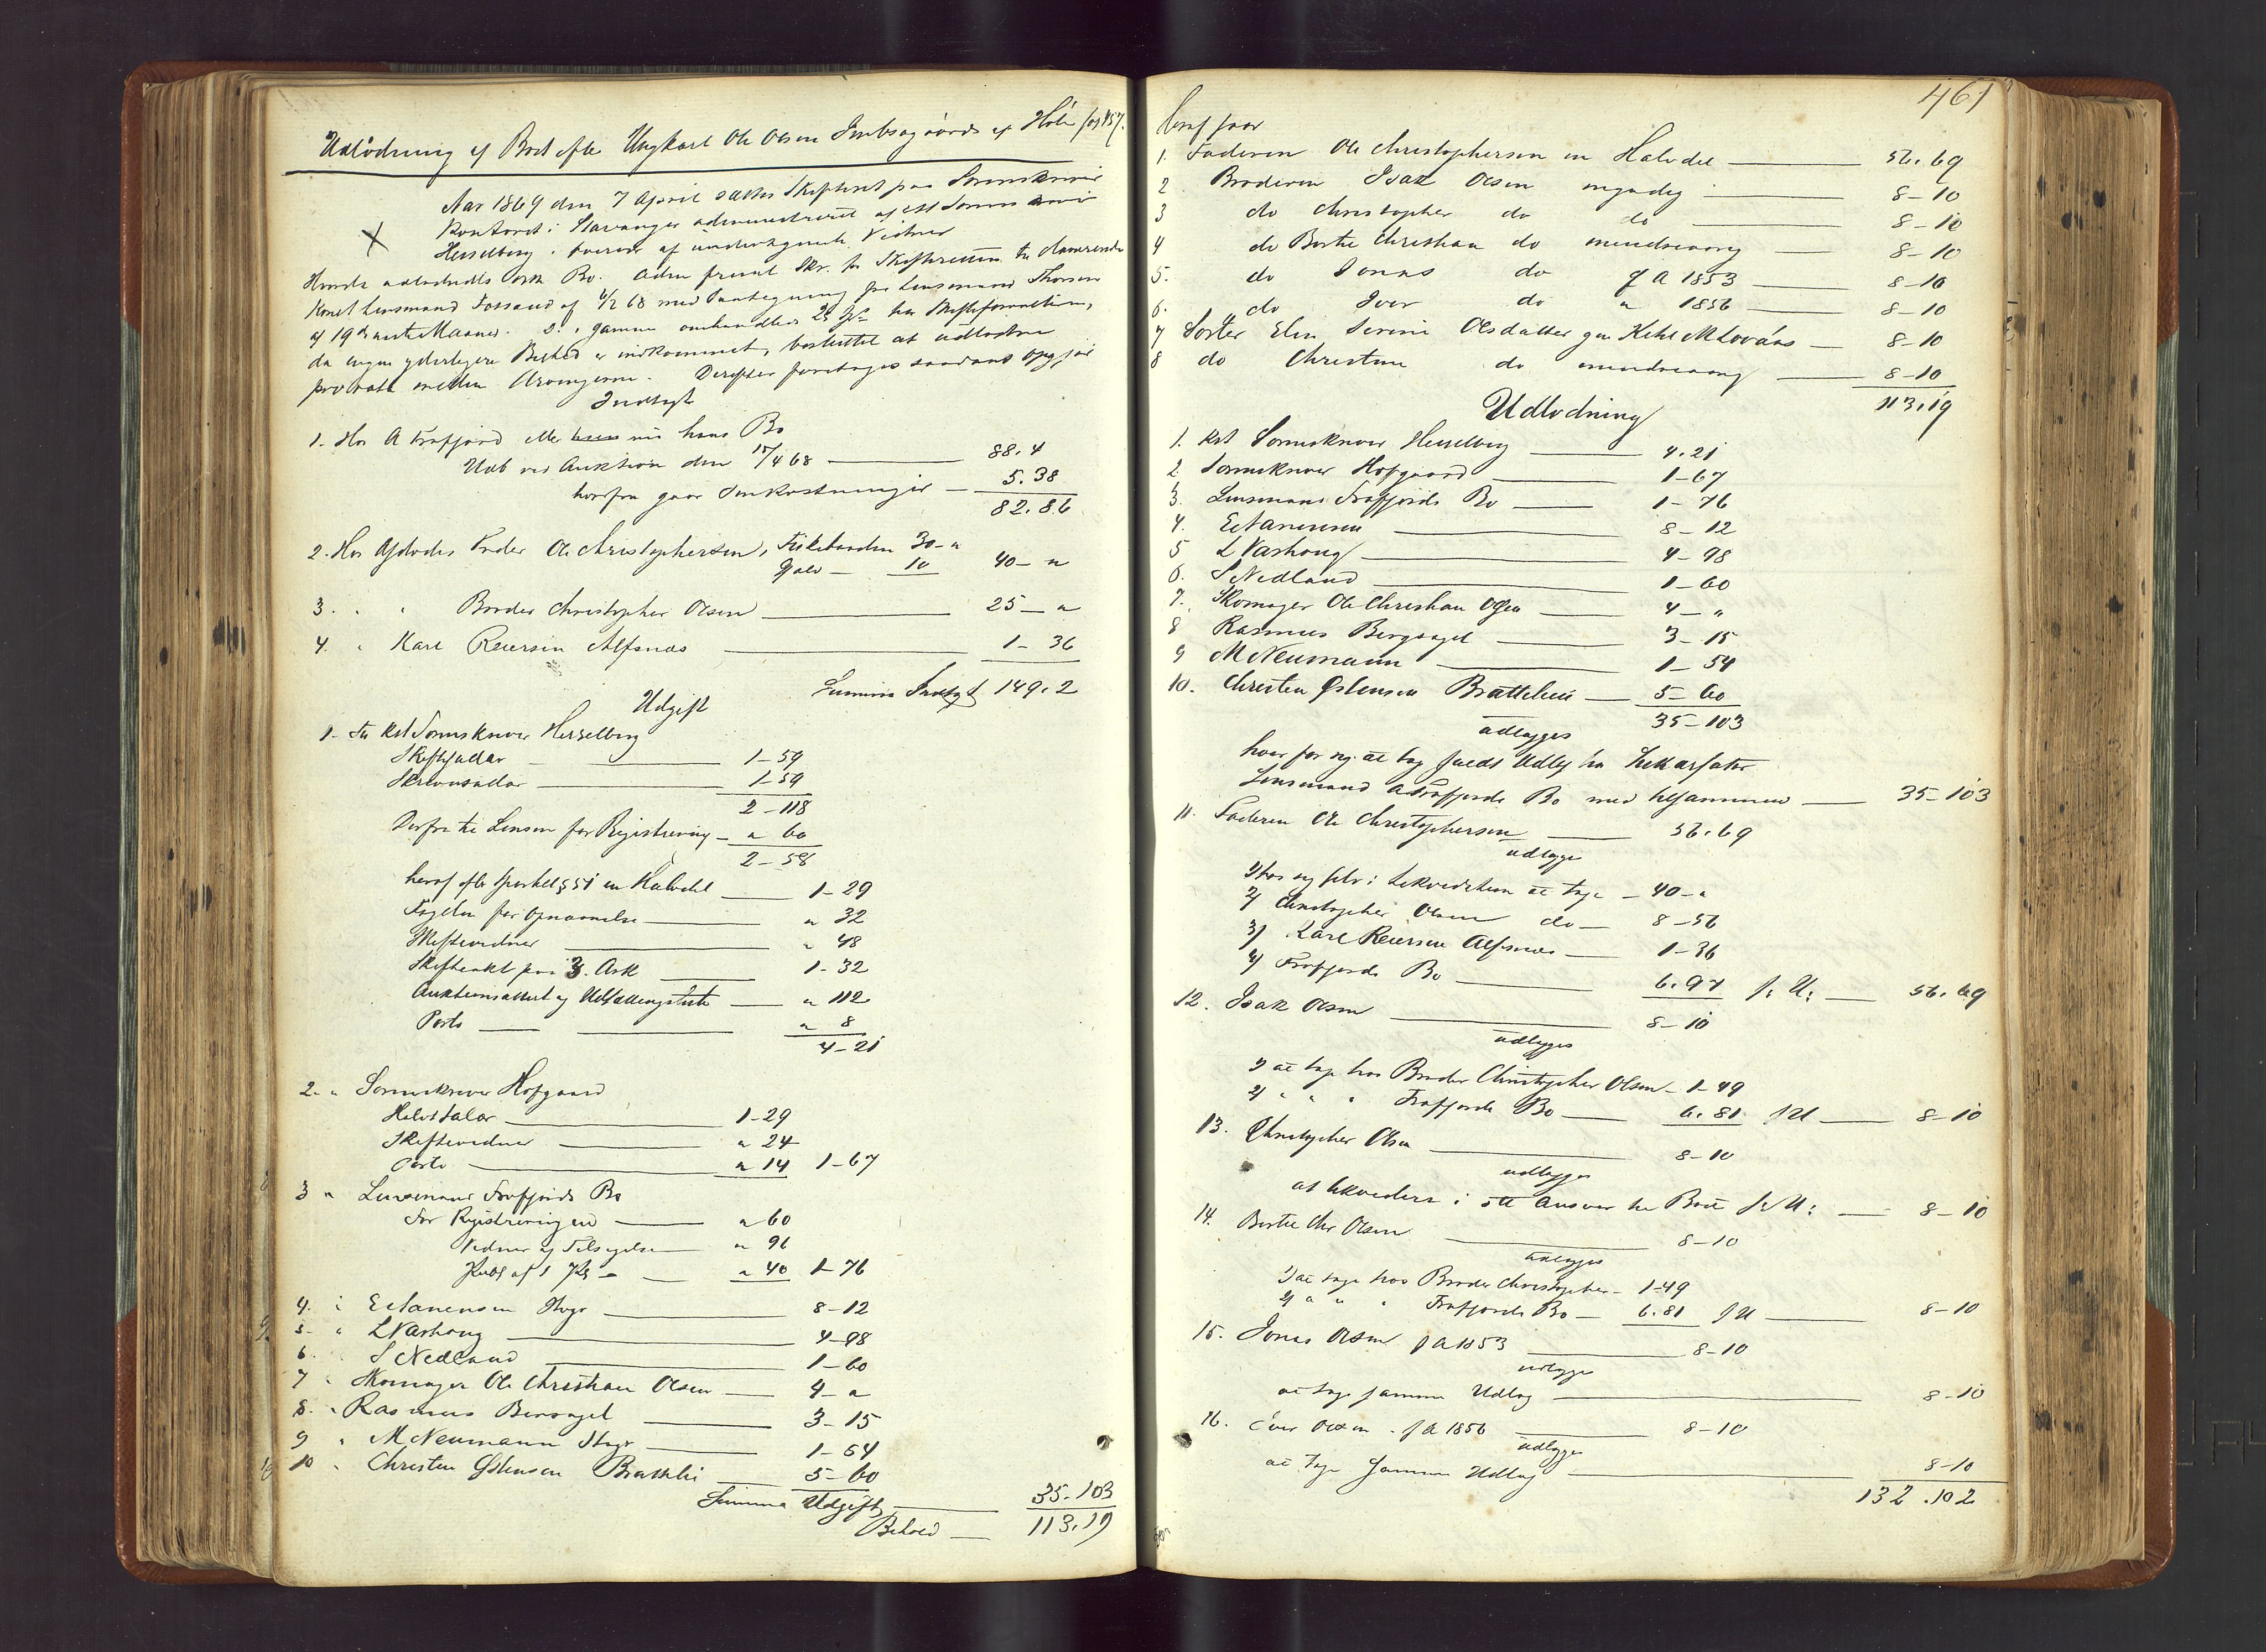 Udlodning af Boet efter Ungkarl Ole Olsen af Høle
Aar 1869 den 7 April sattes Skifteret paa Sorenskriver
Kontoret i Stavanger administreret af cst Sorenskriver
Hesselberg i Overvær af undertegnede Vidner
Hvorda udlodedes Bo.
Const Lensmand Fossand af 4/2 68 med Paategning fra Lensmand Thorsen
af 19de næste Maaned.
da ingen yderligere Besked er indkommet, besluttet at udlodde
prorata mellem Arvingerne. Derefter foretages saadant Opgjør
Indtægt
1. Hos A Frafjord eller nu hans Bo
Udb ved Auktion den 15/4 68 88.4
hvorfra gaar Omkostninger 5.38
82.86
2. Hos Afdødes Fader Ole Christophersen, Fiskebaaden 30 - "
Gjæld 10 40 - "
3. " " Broder Christopher Olsen 25 - "
4. " Karl Reiersen Alfsnæs 1 - 36
Summa Indtægt 149.2
Udgift
1. Til cst Sorenskriver Hesselberg
Skiftesallar 1 - 59
Skriversallar 1 - 59
2 - 118
Derfra til Lensm for Registrering " 60
2 - 58
heraf efter Sportel § 51 en Halvdel 1 - 29
Fogden for Opnævnelse " 32
Skiftevidner " 48
Skifteakt paa 3 Ark 1 - 32
Auktionsattest og Udlodningsliste " 112
Porto " 8
4 - 21
2. " Sorenskriver Hofgaard
Halvt Salær 1 - 29
Skiftevidner " 24
Porto " 14 1 - 67
3 " Lensmand Frafjords Bo
For Registreringen " 60
Vidner og Tilsigelse " 96
" 40 1 - 76
4. " E Tanensen 8 - 12
5. " L Varhoug 4 - 98
6. " S Nedland 1 - 60
7 " Skomager Ole Christian Olsen 4 - "
8. " Rasmus Bersagel 3 - 15
9 " M Neumann 1 - 54
10 " Christen Østensen Brattelie 5 - 60
Summa Udgift 35.103
Behold 113.19
461
heraf faar
1. Faderen Ole Christophersen en Halvdel 56.69
2 Broderen Isak Olsen myndig 8 - 10
3 do Christopher do do 8 - 10
4 do Bertil Christian do mindreaarig 8 - 10
5. do Jonas do f A 1853 8 - 10
6. do Iver do " 1856 8 - 10
7 Søster Elen Serine Olsdatter gm Ketil M Lovaas 8 - 10
8 do Christine do mindreaarig 8 - 10
113.19
Udlodning
1. cst Sorenskriver Hesselberg 4.21
2. Sorenskriver Hofgaard 1 - 67
3. Lensmand Frafjords Bo 1 - 76
4. E Tanensen 8 - 12
5 L Varhoug 4 - 98
6. S Nedland 1 - 60
7. Skomager Ole Christian Olsen 4 - "
8 Rasmus Bergsagel 3 - 15
9 M Neumann 1 - 54
10. Christen Østensen Brattelie 5 - 60
35 - 103
udlægges
hver for sig at tage fuldt Udlæg hos
Lensmand A Frafjords Bo med tilsammen 35 - 103
11. Faderen Ole Christophersen 56.69
udlægges
1) hos sig selv i Likvidation at tage 40 - "
2) Christopher Olsen do 8 - 56
3) Karl Reiersen Alfsnæs 1 - 36
4) Frafjords Bo 6.97 f: U: 56.69
12. Isak Olsen 8 - 10
udlægges
1) at tage hos Broder Christopher Olsen 1 - 49
2) " " " Frafjords Bo 6.81 f U 8 - 10
13. Christopher Olsen 8 - 10
udlægges
at likvidere i sit Ansvar til Boet f: U: 8 - 10
14. Bertil Chr Olsen 8 - 10
udlægges
1) at tage hos Broder Christopher 1 - 49
2) " " " Frafjords Bo 6.81 f U 8 - 10
15. Jonas Olsen f A 1853 8 - 10
udlægges
at tage samme Udlæg 8 - 10
16. Iver Olsen f A 1856 8 - 10
udlægges
at tage samme Udlæg 8 - 10
132.102